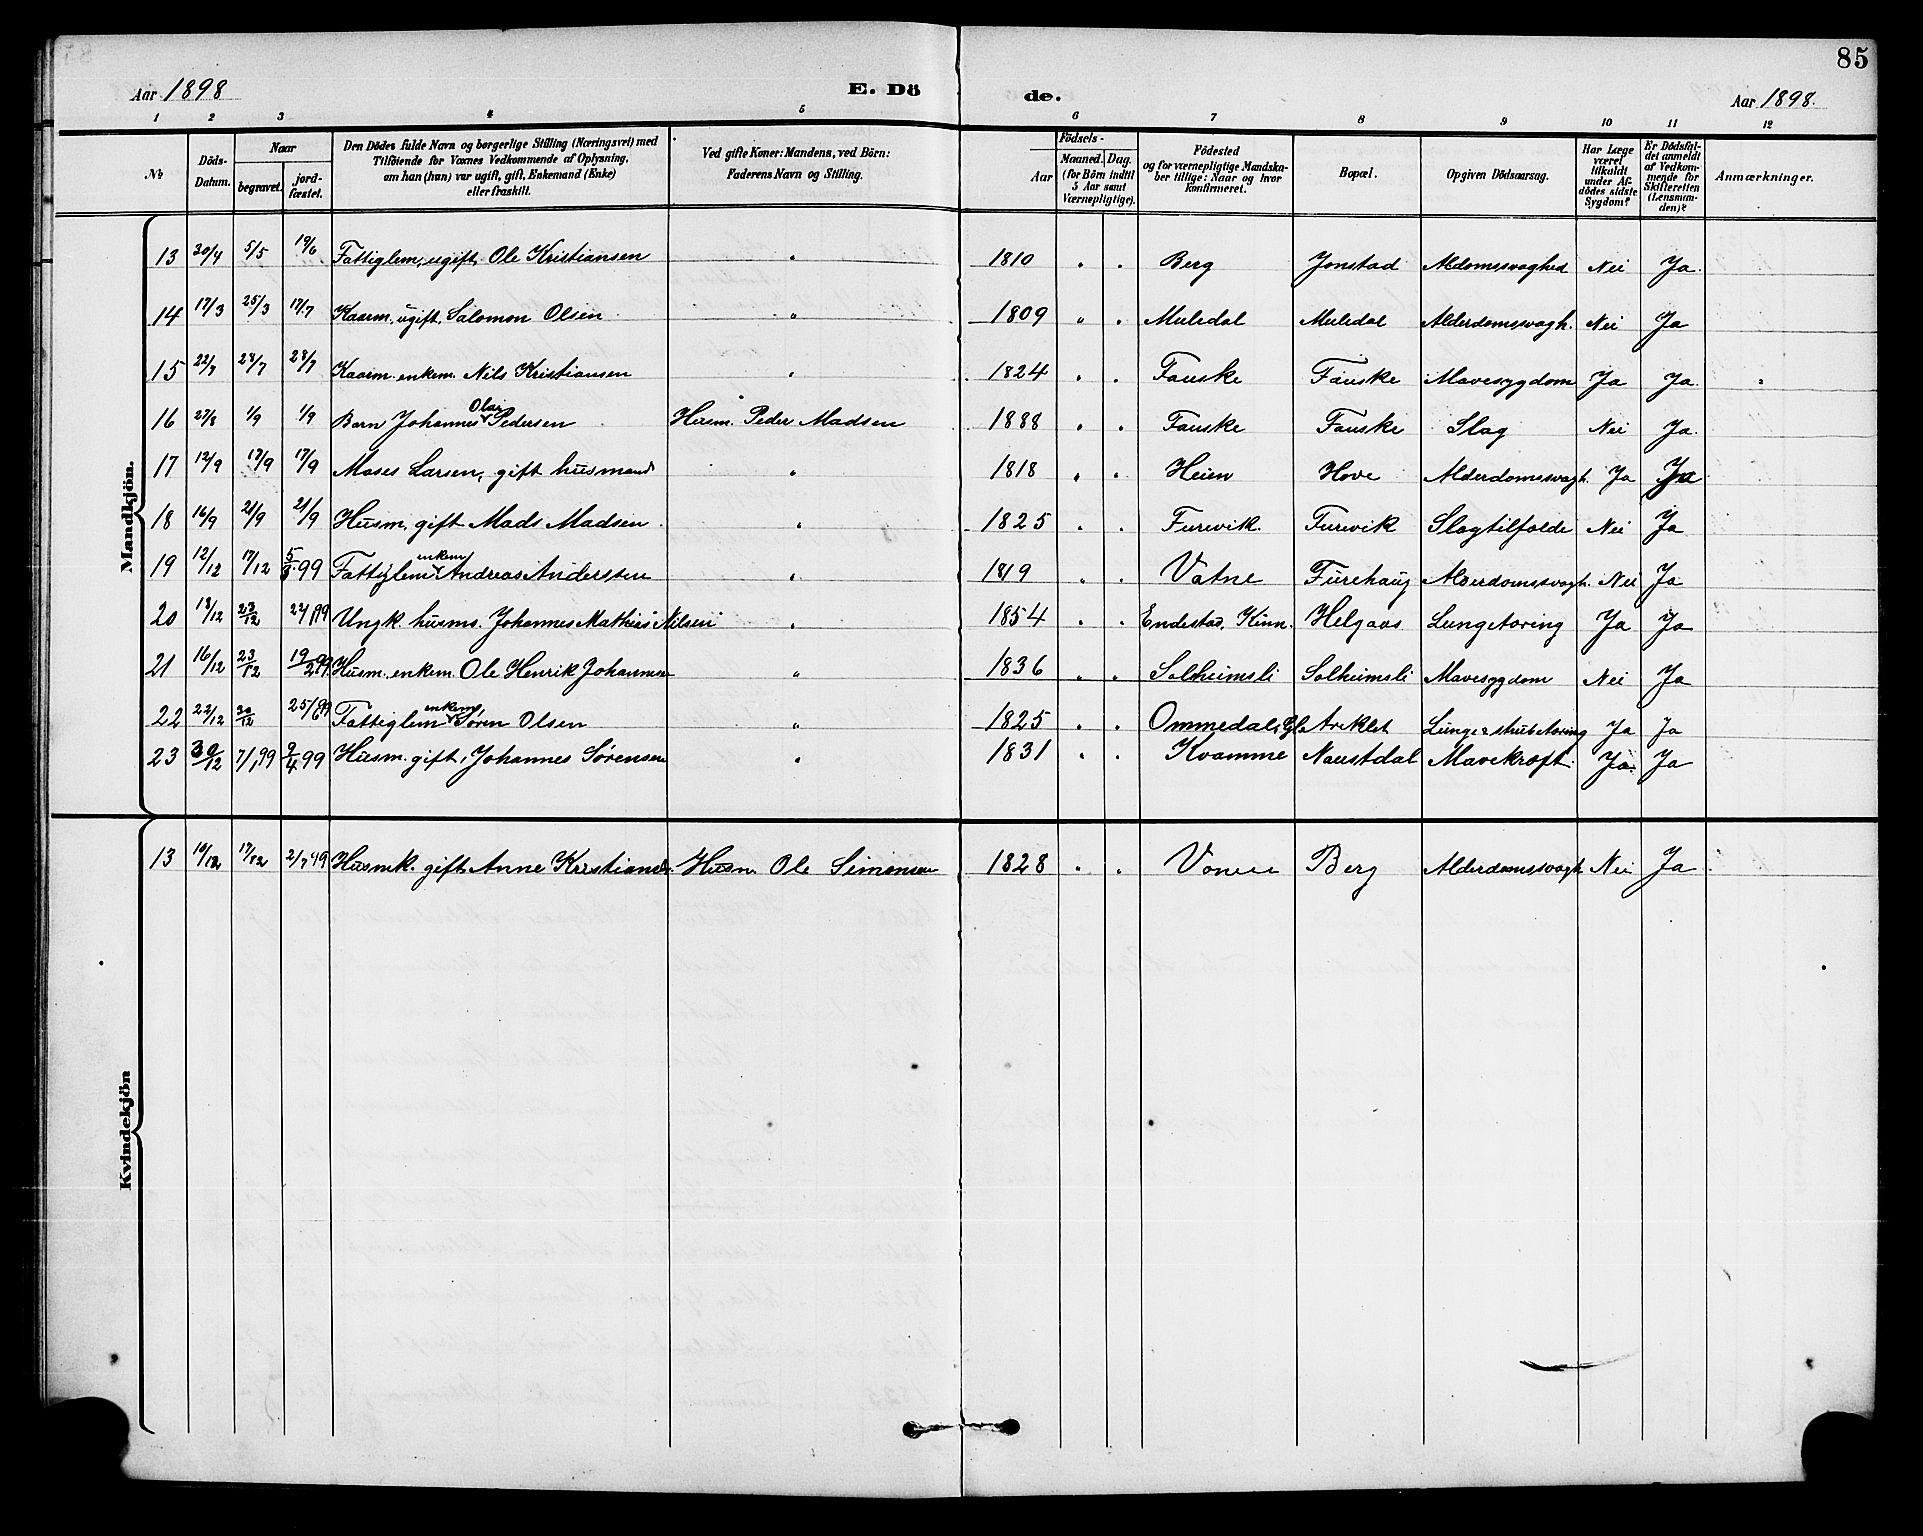 85
Aar 1898
E. Dö de.
Aar 1898.
1 2 3 4 5 6 7 8 9 10 11 12
No
Döds-Datum.
Naar
begravet.
jord-fæstet.
Den Dödes fulde Navn og borgerlige Stilling (Næringsvei) med
Tilföiende for Voxnes Vedkommende af Oplysning,
om han (hun) var ugift, gift, Enkemand (Enke)
eller fraskilt.
Ved gifte Koner: Mandens, ved Börn:
Faderens Navn og Stilling.
Födsels-
Aar
Maaned. Dag.
(for Börn indtil
5 Aar samt
Værnepligtige).
Födested
og for værnepligtige Mandska-
ber tillige: Naar og hvor
konfirmeret.
Bopæl.
Opgiven Dödsaarsag.
Har Læge
været
tilkaldt
under Af-
dödes sidste
Sygdom?
Er Dödsfal-
det anmeldt
af Vedkom-
mende for
Skifteretten
(Lensman-
den)?
Anmærkninger.
Mandkjön.
13 30/4 5/5 19/6 Fattiglem, ugift, Ole Kristiansen " 1810 " " Berg Jonstad Aldomssvaghed Nei Ja
14 17/3 25/3 17/7 Kaarm. ugift. Salomon Olsen " 1809 " " Muledal Muledal Alderdomssvagh. Nei Ja
15 22/7 28/7 28/7 Kaarm. enkem. Nils Kristiansen " 1824 " " Fauske Fauske Mavesygdom Ja Ja "
16 27/8 1/9 1/9 Barn Johannes Olai Pedersen Husm. Peder Madsen 1888 " " Fauske Fauske Slag Nei Ja
17 12/9 17/9 17/9 Moses Larsen, gift husmand " 1818 " " Heien Hove Alderdomssvagh. Ja Ja
18 16/9 21/9 21/9 Husm. gift Mads Madsen " 1825 " " Furevik. Furevik Slagtilfælde Nei Ja
19 12/12 17/12 5/3 99 Fattiglem enkem Andreas Anderssen " 1819 " " Vatne Furehaug Alderdomssvagh. Nei Ja
20 18/12 23/12 22/1 99 Ungk. husms. Johannes Mathias Nilsen " 1854 " " Endestad, Kinn. Helgaas Lungetæring Ja Ja
21 16/12 23/12 19/2 99 Husm. enkem. Ole Henrik Johannesen " 1836 " " Solheimsli Solheimsli Mavesygdom Nei Ja
22 22/12 30/12 25/6 99 Fattiglem enkem Søren Olsen " 1825 " " Ommedal, Gl. Areklet Lunge & strubetæring Ja Ja
23 30/12 7/1 99 9/4 99 Husm. gift, Johannes Sørensen " 1831 " " Kvamme Naustdal Mavekræft. Ja Ja
Kvindekjön
13 10/12 17/12 2/7 49 Husmk. gift. Anne Kristiansd. Husm. Ole Simonsen 1828 " " Vonen Berg Alderdomssvagh. Nei Ja